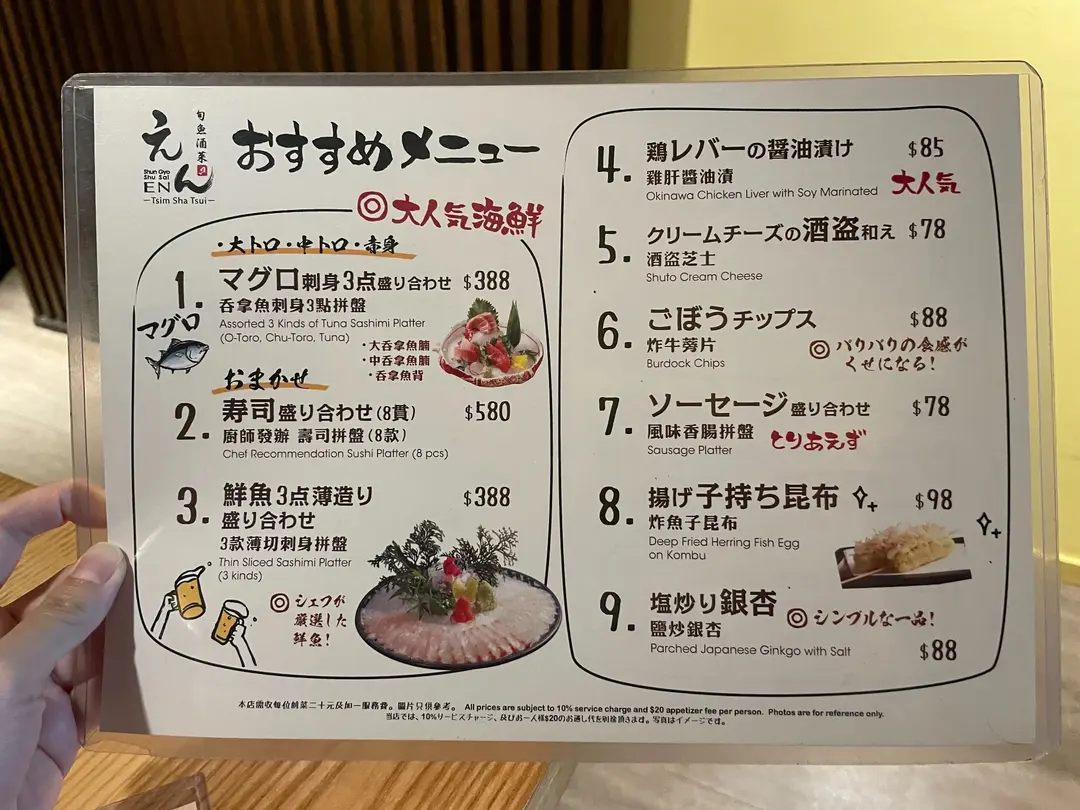 えん
旬魚酒菜
Shun Gyo
Shu Sai
EN
—Tsim Sha Tsui—
おすすめメニュー
◎大人気海鮮
・大トロ・中トロ・赤身
1. マグロ刺身3点盛り合わせ $388
吞拿魚刺身3點拼盤
Assorted 3 Kinds of Tuna Sashimi Platter
(O-Toro, Chu-Toro, Tuna)
・大吞拿魚腩
・中吞拿魚腩
・吞拿魚背
マグロ
おまかせ
2. 寿司盛り合わせ(8貫) $580
廚師發辦 壽司拼盤(8款)
Chef Recommendation Sushi Platter (8 pcs)
3. 鮮魚3点薄造り $388
盛り合わせ
3款薄切刺身拼盤
Thin Sliced Sashimi Platter
(3 kinds)
◎シェフが
厳選した
鮮魚!
4. 鶏レバーの醤油漬け $85
雞肝醬油漬
Okinawa Chicken Liver with Soy Marinated
大人気
5. クリームチーズの酒盗和え $78
酒盗芝士
Shuto Cream Cheese
6. ごぼうチップス $88
炸牛蒡片
Burdock Chips
◎パリパリの食感が
くせになる!
7. ソーセージ盛り合わせ $78
風味香腸拼盤
Sausage Platter
とりあえず
8. 揚げ子持ち昆布 $98
炸魚子昆布
Deep Fried Herring Fish Egg
on Kombu
9. 塩炒り銀杏
鹽炒銀杏
Parched Japanese Ginkgo with Salt
◎シンプルな一品!
$88
本店需收每位前菜二十元及加一服務費。圖片只供參考。 All prices are subject to 10% service charge and $20 appetizer fee per person. Photos are for reference only.
当店では、10%サービスチャージ、及びお一人様$20のお通し代を別途頂きます。写真はイメージです。